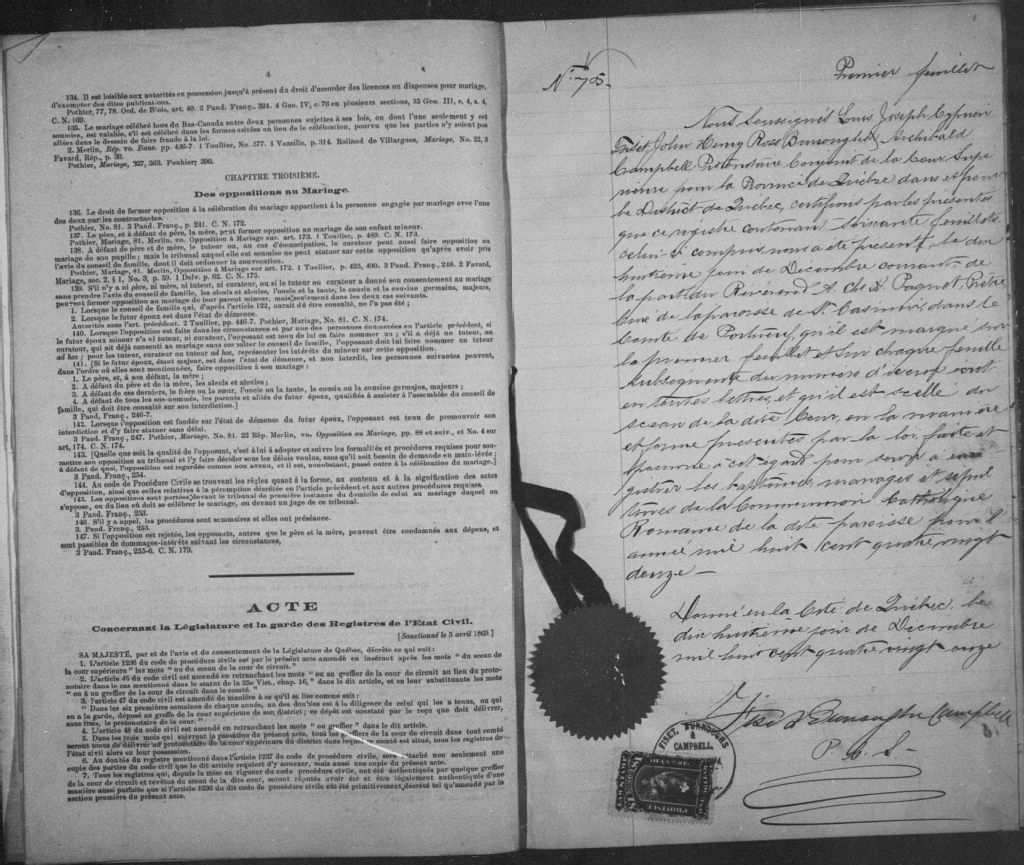 4
134. Il est loisible aux autorités en possession jusqu'à présent du droit d'accorder des licences ou dispenses pour mariage,
d'exempter des dites publications.
Pothier, 77, 78. Ord. de Blois, art. 40. 2 Pand. Franç., 324. 4 Geo. IV, c. 76 en plusieurs sections, 35 Geo. III, c. 4, s. 4,
C. N. 169.
135. Le mariage célébré hors du Bas-Canada entre deux personnes sujettes à ses lois, ou dont l'une seulement y est
soumise, est valable, s'il est célébré dans les formes usitées au lieu de la célébration, pourvu que les parties n'y soient pas
allées dans le dessein de faire fraude à la loi.
2. Merlin, Rép. vo. Bans. pp. 436-7. 1 Toullier, No. 577. 1 Vazeille, p. 314. Rolland de Villargues, Mariage, No. 22, 3
Favard, Rép., p. 30.
Pothier, Mariage, 327, 363. Pouhier, 390.
CHAPITRE TROISIÈME.
Des oppositions au Mariage.
136. Le droit de former opposition à la célébration du mariage appartient à la personne engagée par mariage avec l'une
des deux parties contractantes.
Pothier, No. 81. 3 Pand. Franç., p. 241. C. N. 172.
137. Le père, et à défaut du père, la mère, peut former opposition au mariage de son enfant mineur.
Pothier, Mariage, 81. Merlin, vo. Opposition à Mariage sur. art. 173. 1 Toullier, p. 489. C. N. 173.
138. A défaut de père et de mère, le tuteur ou, au cas d'émancipation, le curateur peut aussi faire opposition au
mariage de son pupille; mais le tribunal auquel elle est soumise ne peut statuer sur cette opposition qu'après avoir pris
l'avis du conseil de famille, dont il doit ordonner la convocation.
Pothier, Mariage, 81. Merlin, Opposition à Mariage sur art. 172. 1 Toullier, p. 425, 490. 3 Pand. Franç., 248. 2 Favard,
Mariage, sec. 2, § 1, No. 3, p. 59. 1 Delv. p. 62. C. N. 175.
139. S'il n'y a ni père, ni mère, ni tuteur, ni curateur, ou si le tuteur ou curateur a donné son consentement au mariage
sans prendre l'avis du conseil de famille, les aïeuls et aïeules, l'oncle et la tante, le cousin et la cousine germains, majeurs,
peuvent former opposition au mariage de leur parent mineur, mais seulement dans les deux cas suivants.
1. Lorsque le conseil de famille qui, d'après l'article 122, aurait dû être consulté, ne l'a pas été;
2. Lorsque le futur époux est dans l'état de démence.
Autorités sous l'art. précédent. 2 Toullier, pp. 446-7. Pothier, Mariage, No. 81. C. N. 174.
140. Lorsque l'opposition est faite dans les circonstances et par une des personnes énumérées en l'article précédent, si
le futur époux mineur n'a ni tuteur, ni curateur, l'opposant est tenu de lui en faire nommer un; s'il a déjà un tuteur, ou
curateur, qui ait déjà consenti au mariage sans consulter le conseil de famille, l'opposant doit lui faire nommer un tuteur
ad hoc; pour les tuteur, curateur ou tuteur ad hoc, représenter les intérêts du mineur sur cette opposition.
141. [Si le futur époux, étant majeur, est dans l'état de démence, et non interdit, les personnes suivantes peuvent,
dans l'ordre où elles sont mentionnées, faire opposition à son mariage:
1. Le père, et, à son défaut, la mère;
2. A défaut du père et de la mère, les aïeuls et aïeules;
3. A défaut de ces derniers, le frère ou la sœur, l'oncle ou la tante, le cousin ou la cousine germains, majeurs;
4. A défaut de tous les sus-nommés, les parents et alliés du futur époux, qualifiés à assister à l'assemblée du conseil de
famille, qui doit être consulté sur son interdiction.]
3 Pand. Franç., 246-7.
142. Lorsque l'opposition est fondée sur l'état de démence du futur époux, l'opposant est tenu de promouvoir son
interdiction et d'y faire statuer sans délai.
3 Pand. Franç., 247. Pothier, Mariage, No. 81. 22 Rép. Merlin, vo. Opposition au Mariage, pp. 88 et suiv., et No. 4 sur
art, 174. C. N. 174.
143. [Quelle que soit la qualité de l'opposant, c'est à lui à adopter et suivre les formalités et procédures requises pour sou-
mettre son opposition au tribunal et l'y faire décider sous les délais voulus, sans qu'il soit besoin de demande en main-lévée;
à défaut de quoi, l'opposition est regardée comme non avenu, et il est, nonobstant, passé outre à la célébration du mariage.]
3 Pand. Franç., 254.
144. Au code de Procédure Civile se trouvent les règles quant à la forme, au contenu et à la signification des actes
d'opposition, ainsi que celles relatives à la péremption décrétée en l'article précédent et aux autres procédures requises.
145. Les oppositions sont portées devant le tribunal de première instance du domicile de celui au mariage duquel on
s'oppose, ou du lieu où doit se célébrer le mariage, ou devant un juge de ce tribunal.
3 Pand. Franç., 253.
146. S'il y a appel, les procédures sont sommaires et elles ont préséance.
3. Pand. Franç., 253.
147. Si l'opposition est rejetée, les opposants, autres que le père et la mère, peuvent être condamnés aux dépens, et
sont passibles de dommages-intérêts suivant les circonstances,
3 Pand. Franç., 255-6. C. N. 179.
ACTE
Concernant la Législature et la garde des Registres de l'Etat Civil.
[Sanctionné le 5 avril 1869.]
SA MAJESTÉ, par et de l'avis et du consentement de la Législature de Québec, décrète ce qui suit:
1. L'article 1236 du code de procédure civile est par le présent acte amendé en insérant après les mots "du sceau de
la cour supérieure" les mots "ou du sceau de la cour de circuit."
2. L'article 45 du code civil est amendé en retranchant les mots "ou au greffier de la cour de circuit au lieu du proto-
notaire dans le cas mentionné dans le statut de la 25e Vict., chap. 16," dans le dit article, et en leur substituants les mots
"ou à un greffier de la cour de circuit dans le comté."
3. L'article 47 du code civil est amendé de manière à ce qu'il se lise comme suit:
"Dans les six premières semaines de chaque année, un des doubles est à la diligence de celui qui les a tenus, ou qui
en a la garde, déposé au greffe de la cour supérieure de son district; ce dépôt est constaté par le reçu que doit délivrer,
sans frais, le protonotaire de la cour."
4. L'article 48 du code civil est amendé en retranchant les mots "ou greffier" dans le dit article.
5. Dans les trois mois qui suivront la passation du présent acte, tous les greffiers de la cour de circuit dans tout comté
seront tenus de délivrer au protonotaire de la cour supérieure du district dans lequel ce comté est situé, tous les registres de
l'état civil alors en leur possession.
6. Au double du registre mentionné dans l'article 1237 du code de procédure civile, sera attaché non seulement une
copie des parties du code civil que le dit article requiert d'y annexer, mais aussi une copie du présent acte.
7. Tous les registres qui, depuis la mise en vigueur du code procédure civile, ont été authentiqués par quelque greffier
de la cour de circuit et revêtus du sceau de la dite cour, seront réputés avoir été et être légalement authentiqués d'une
manière aussi parfaite que si l'article 1236 du dit code de procédure civile eût été primitivement décrété tel qu'amendé par la
section première du présent acte.
Premier feuillet
Nous Soussignés Louis Joseph Cyprien
Fiset, John Henry Ross Burroughs & Archibald
Campbell Protonotaire Conjoint de la Cour Supé
rieure pour la Province de Québec dans et pour
le District de Québec, certifions par les présentes
que ce registre contenant soixante feuillets
celui-ci compris, nous a été présenté, le dix
huitième jour de Décembre courant, de
la part du Révérend A. Chs H. Paquet, Prêtre
Curé de la paroisse de St. Casimir, dans le
Comté de Portneuf, qu'il est marqué sur
le premier feuillet et sur chaque feuillet
subséquent du numéro d'icelui écrit
en toutes lettres, et qu'il est scellé du
sceau de la dite Cour, en la manière
et forme prescrites par la loi faite et
pourvue à cet égard pour servir à enre
gistrer les baptêmes, mariages et sépul
tures de la Communion Catholique
Romaine de la dite paroisse pour l'
année mil huit cent quatre vingt
douze —
Donné en la Cité de Québec, le
dix huitième jour de Décembre
mil huit cent quatre vingt onze
Fiset Burroughs Campbell
P. C. S.
FISET, BURROUGHS
&
CAMPBELL,